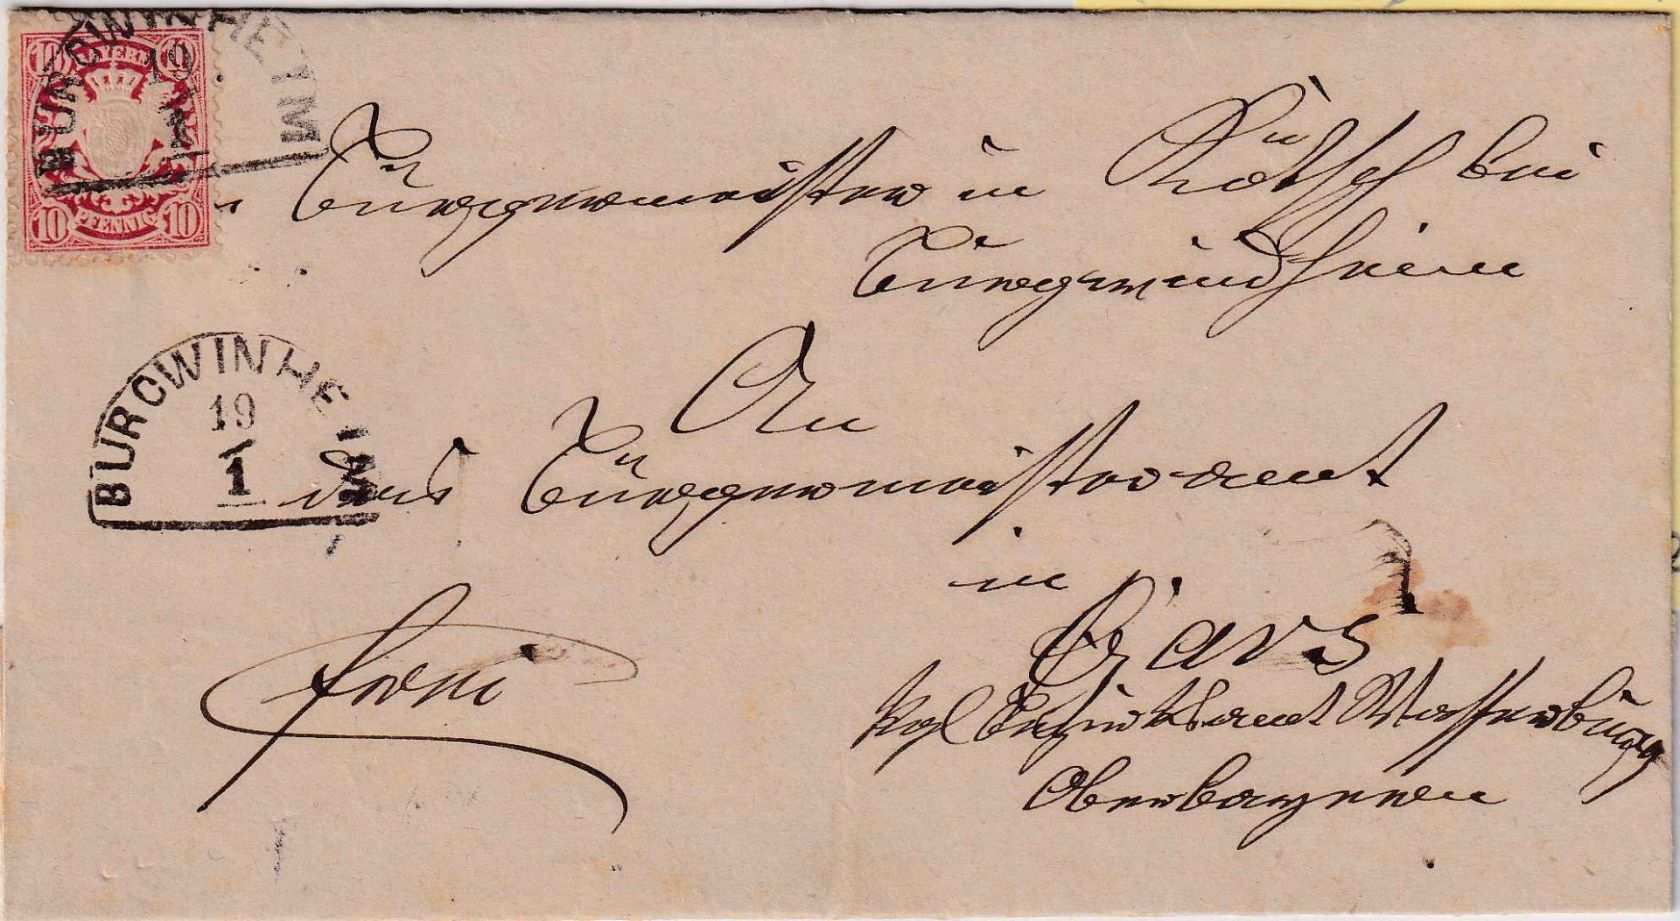 10 BAYERN 10
10 PFENNIG 10
BURGWINHEIM
19
1
Bürgermeister in Kötsch bei
Burgwindheim
BURGWINHEIM
19
1
An
das Bürgermeisteramt
in
Gars
frei
kgl Bezirksamt Wasserburg
Oberbayern